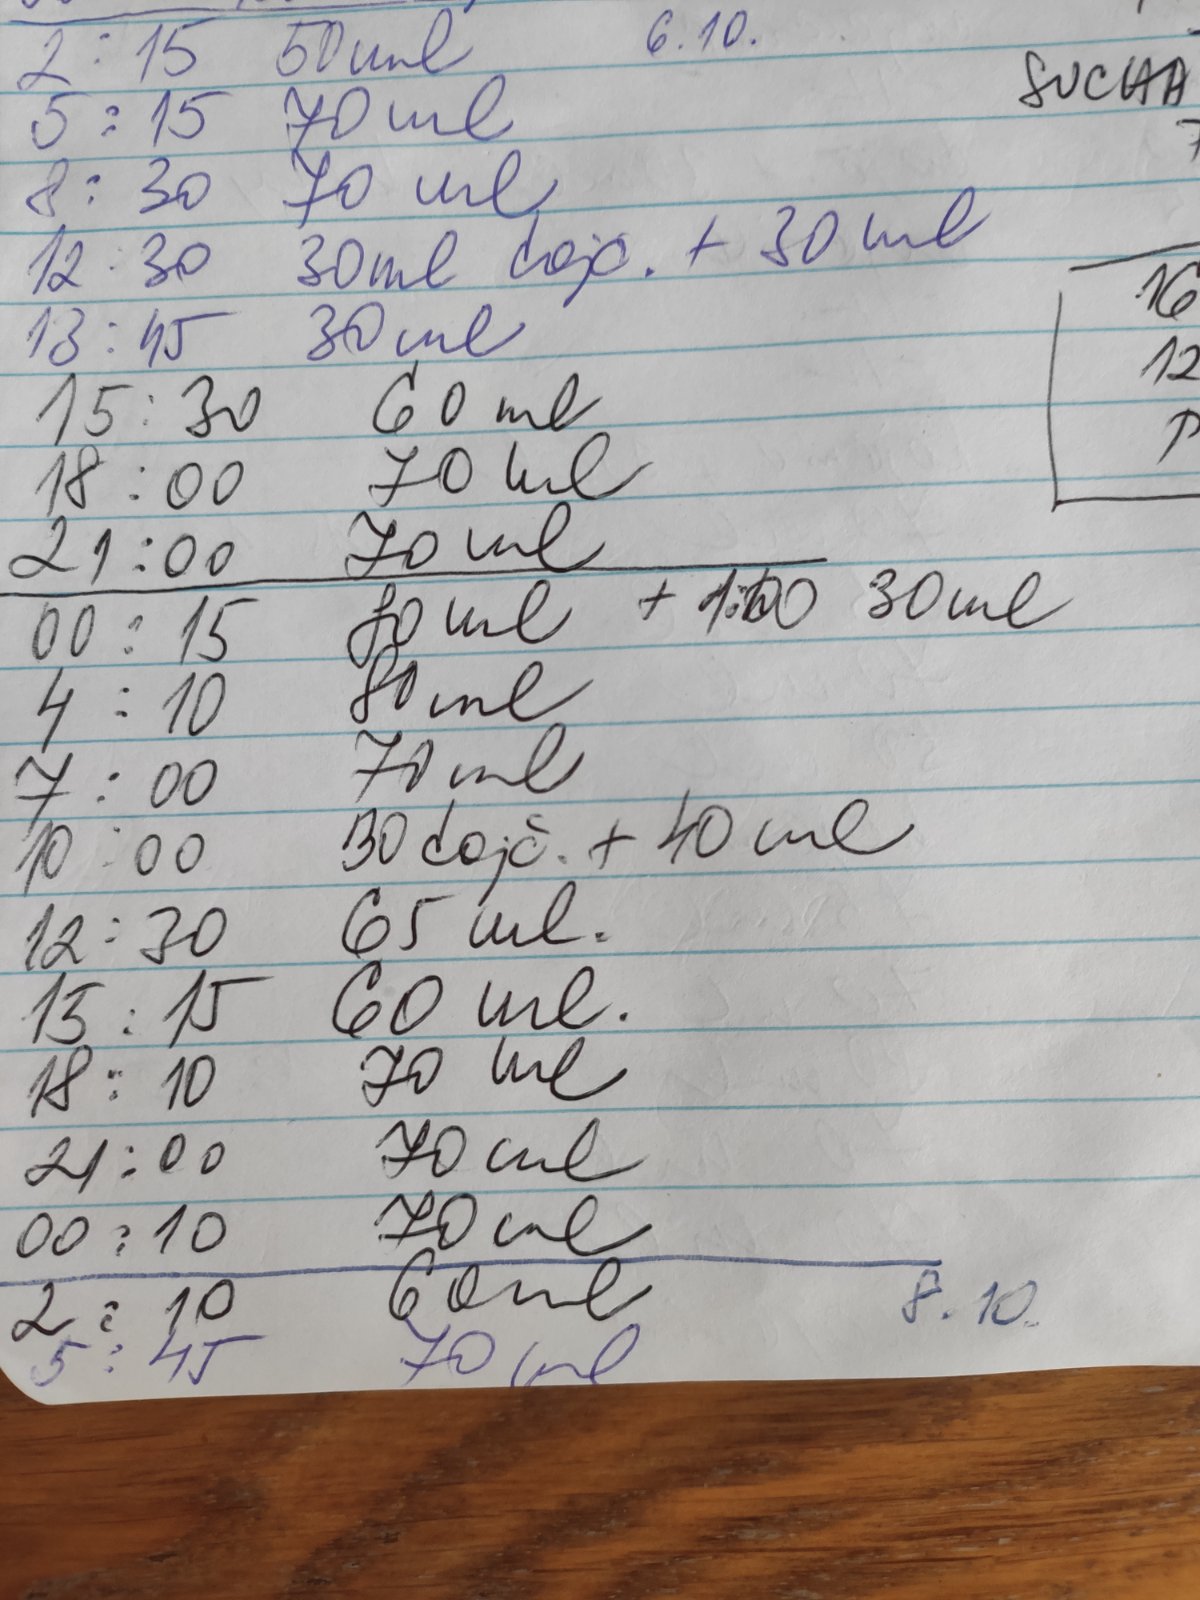 2:15 50ml 6.10.
SUCHA
5:15 70ml
7
8:30 70 ml
12:30 30ml dojč. + 30 ml
16
13:45 30ml
12
15:30 60 ml
18:00 70 ml
21:00 70 ml
00:15 80 ml + 30ml
4:10 80ml
7:00 70ml
10:00 30 dojč. + 40 ml
12:30 65 ml.
15:15 60 ml.
18:10 70 ml
21:00 70 ml
00:10 70 ml
2:10 60ml 8.10.
5:45 70 ml